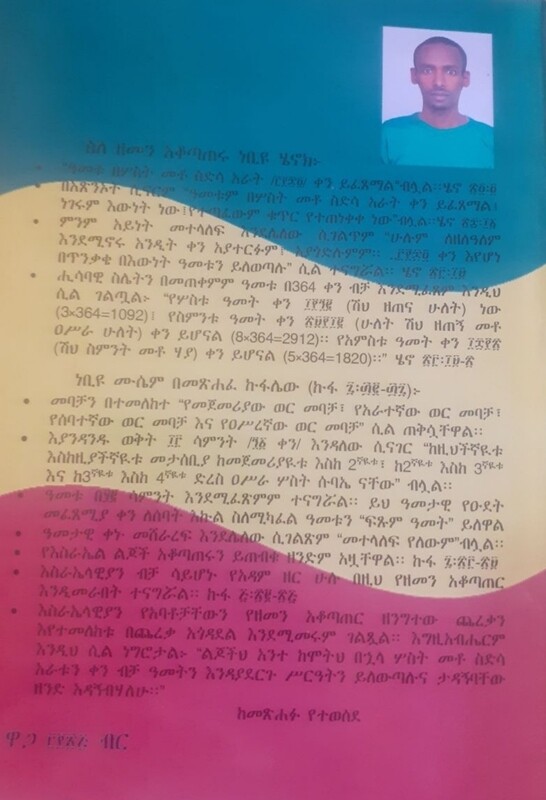 ስለ ዘመን አቆጣጠሩ ነቢዩ ሄኖክ፡-
"ዓመቱ በሦስት መቶ ስድሳ አራት /፫፻፷፬/ ቀን ይፈጸማል"ብሏል።ሄኖ
በአጽንኦት ሲናገር "ዓመቱም በሦስት መቶ ስድሳ አራት ቀን ይፈጸማል፤
ነገሩም እውነት ነው፤የተጻፈውም ቁጥር የተጠነቀቀ ነው"ብሏል።ሄኖ
ምንም አይነት መተላለፍ እንደሌለው ሲገልጥም "ሁሉም ለዘለዓለም
እንደሚኖሩ አንዲት ቀን አያተርፉም፤ አያጎድሉምም። ፫፻፷፬ ቀን እየሆነ
በጥንቃቄ በእውነት ዓመቱን ይለውጣሉ" ሲል ተናግሯል። ሄኖ ፳፮፡፲፱
ሒሳባዊ ስሌትን በመጠቀምም ዓመቱ በ364 ቀን ብቻ እንደሚፈጸም እንዲህ
ሲል ገልጧል፡- "የሦስቱ ዓመት ቀን ፲፻፺፪ (ሽህ ዘጠና ሁለት) ነው
(3×364=1092)፤ የስምንቱ ዓመት ቀን ፳፱፻፲፪ (ሁለት ሽህ ዘጠኝ መቶ
ዐሥራ ሁለት) ቀን ይሆናል (8×364=2912)። የአምስቱ ዓመት ቀን ፲፰፻፳
(ሽህ ስምንት መቶ ሃያ) ቀን ይሆናል (5×364=1820)።" ሄኖ
ነቢዩ ሙሴም በመጽሐፈ ኩፋሌው (ኩፋ
መባቻን በተመለከተ "የመጀመሪያው ወር መባቻ፤ የአራተኛው ወር መባቻ፤
የሰባተኛው ወር መባቻ እና የዐሥረኛው ወር መባቻ" ሲል ጠቅሷቸዋል።
እያንዳንዱ ወቅት ፲፫ ሳምንት /፺፩ ቀን/ እንዳለው ሲናገር "ከዚህችኛዪቱ
እስከዚያችኛዪቱ መታሰቢያ ከመጀመሪያዪቱ እስከ 2ኛዪቱ፤ ከ2ኛዪቱ እስከ 3ኛዪቱ
እና ከ3ኛዪቱ እስከ 4ኛዪቱ ድረስ ዐሥራ ሦስት ሱባኤ ናቸው" ብሏል።
ዓመቱ በ፶፪ ሳምንት እንደሚፈጸምም ተናግሯል። ይህ ዓመታዊ የዑደት
መፈጸሚያ ቀን ለሰባት እኩል ስለሚካፈል ዓመቱን "ፍጹም ዓመት" ይለዋል
ዓመታዊ ቀኑ መሸራረፍ እንደሌለው ሲገልጽም "መተላለፍ የለውም"ብሏል።
የእስራኤል ልጆች አቆጣጠሩን ይጠብቁ ዘንድም አዟቸዋል። ኩፋ
እስራኤላዊያን ብቻ ሳይሆኑ የአዳም ዘር ሁሉ በዚህ የዘመን አቆጣጠር
እንዲመራበት ተናግሯል። ኩፋ
እስራኤላዊያን የአባቶቻቸውን የዘመን አቆጣጠር ዘንግተው ጨረቃን
እየተመለከቱ በጨረቃ አጎዳደል እንደሚመሩም ገልጿል። እግዚአብሔርም
እንዲህ ሲል ነግሮታል፡- "ልጆችህ አንተ ከሞትህ በኋላ ሦስት መቶ ስድሳ
አራቱን ቀን ብቻ ዓመትን እንዳያደርጉ ሥርዓትን ይለውጣሉና ታዳኝባቸው
ዘንድ አዳኝብሃለሁ።"
ከመጽሐፉ የተወሰደ
ዋጋ ብር